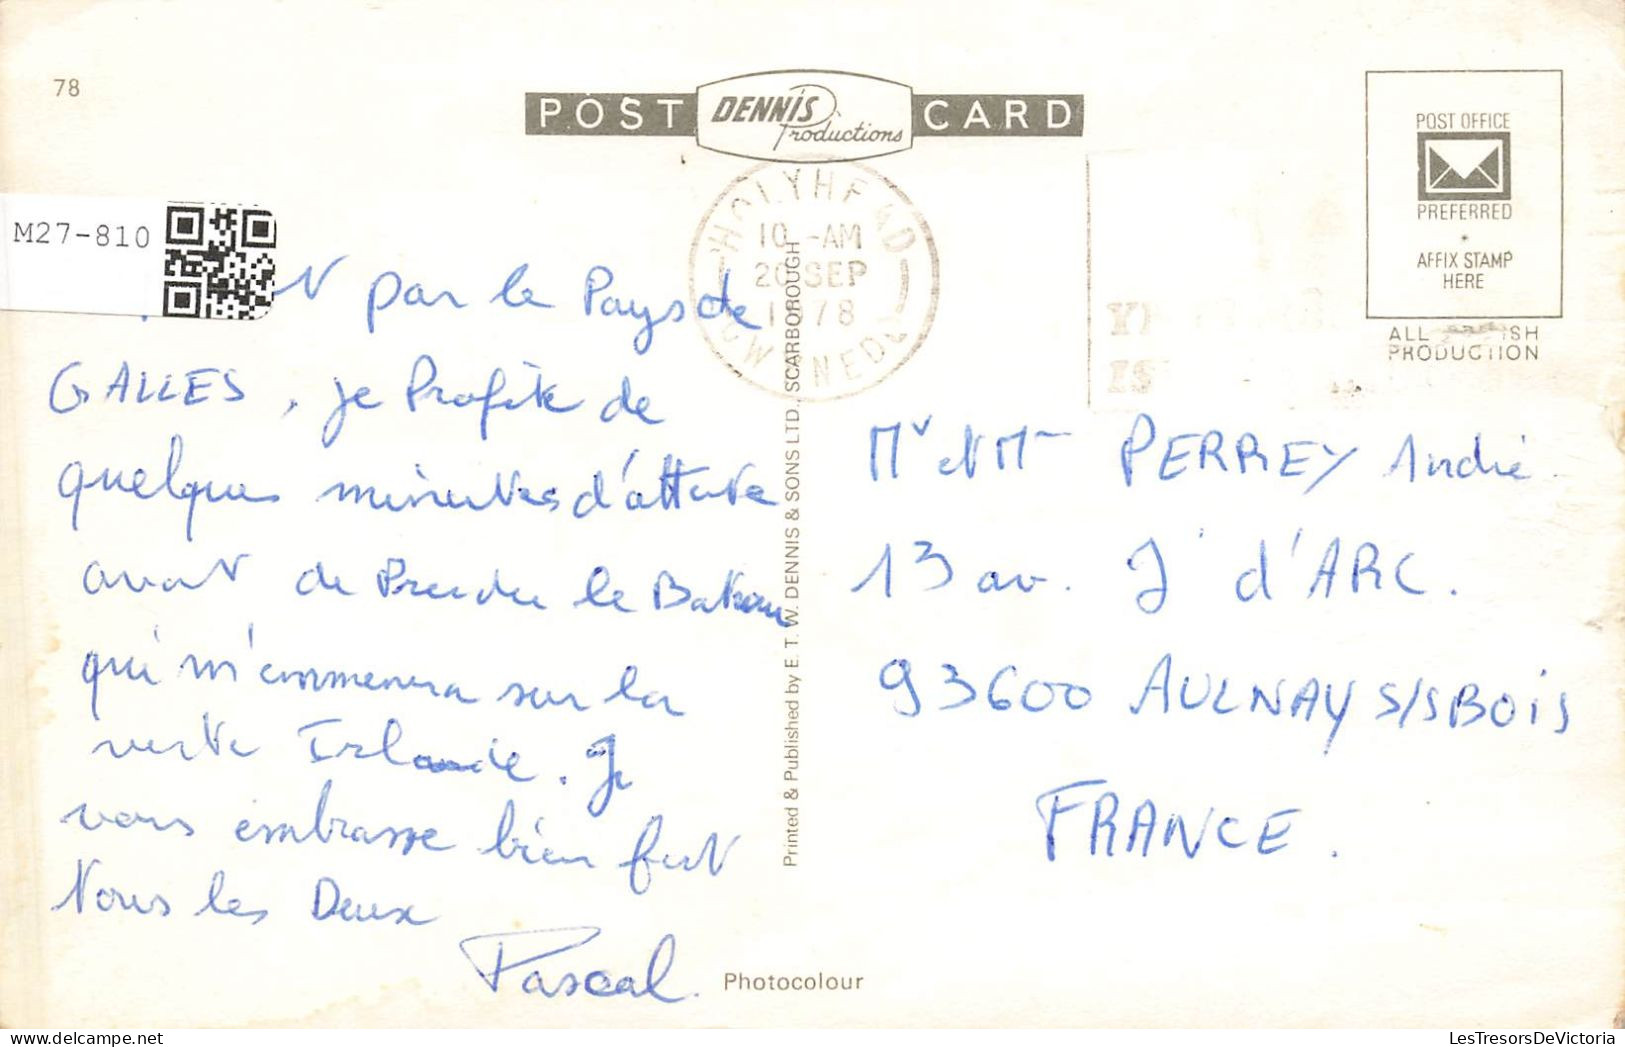 78
POST DENNIS Productions CARD
POST OFFICE
PREFERRED
AFFIX STAMP
HERE
ALL ISH
PRODUCTION
M27-810
HOLYHEAD
10 -AM
20 SEP
1978
par le Pays de
GALLES, je Profite de
quelques minutes d'attente
avant de Prendre le Bateau
qui m'emmenera sur la
verte Irlande. Je
vous embrasse bien fort
Vous les Deux
Pascal.
Printed & Published by E. T. W. DENNIS & SONS LTD., SCARBOROUGH
Mr et Mme PERREY André
13 av. J d'ARC.
93600 AULNAY S/S BOIS
FRANCE.
Photocolour
LesTresorsDeVictoria